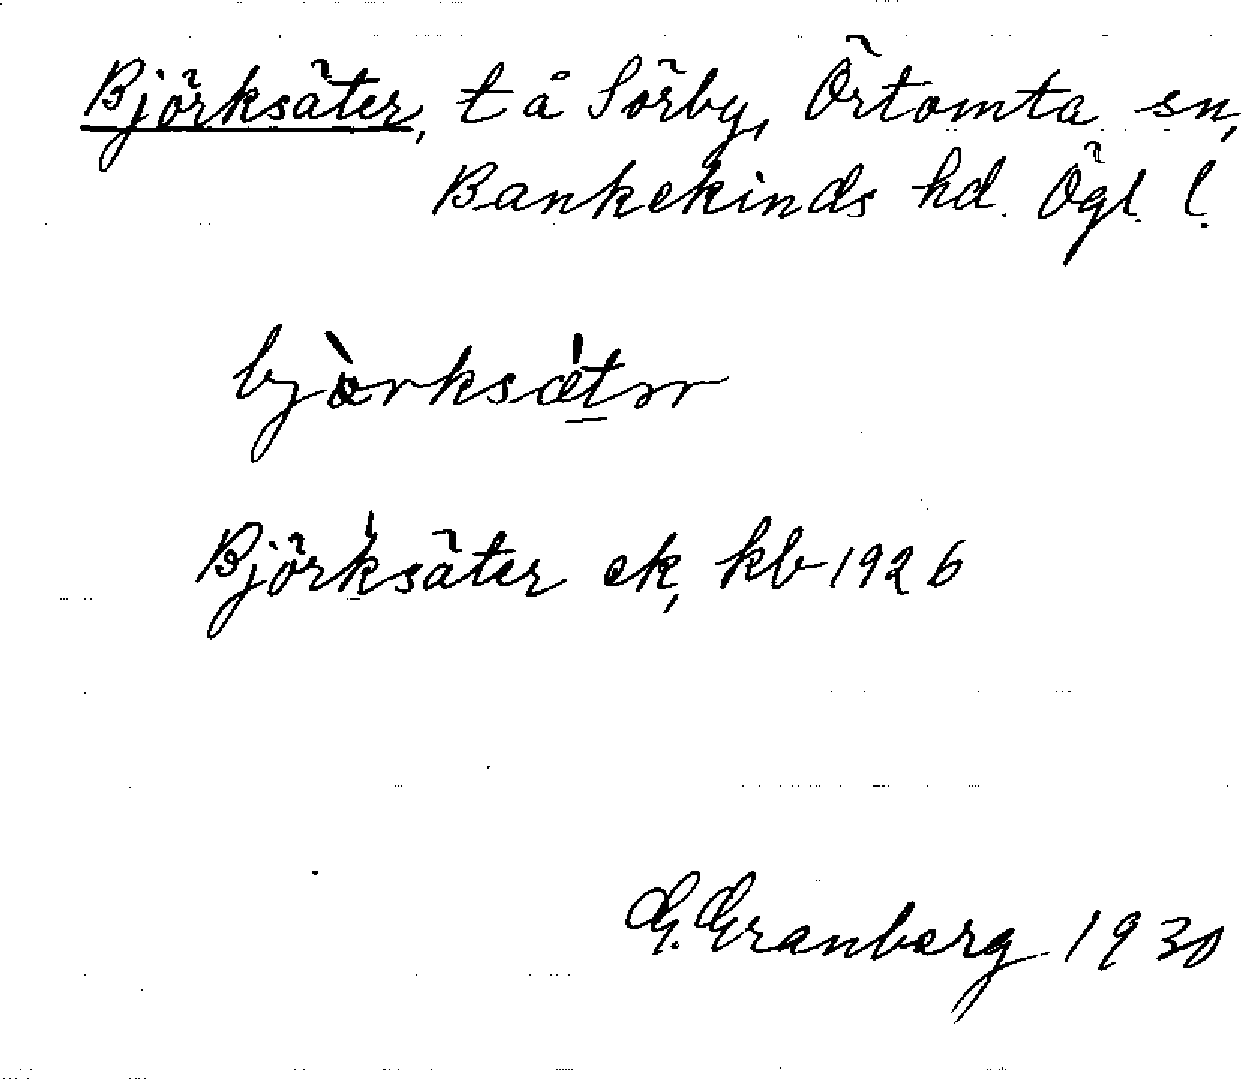 Björksäter, t å Sörby, Örtomta sn,
Bankekinds hd. Ögl. l.
bjὰrksǽt̲ɪr
Björksäter ek, kb 1926
G. Granberg 1930